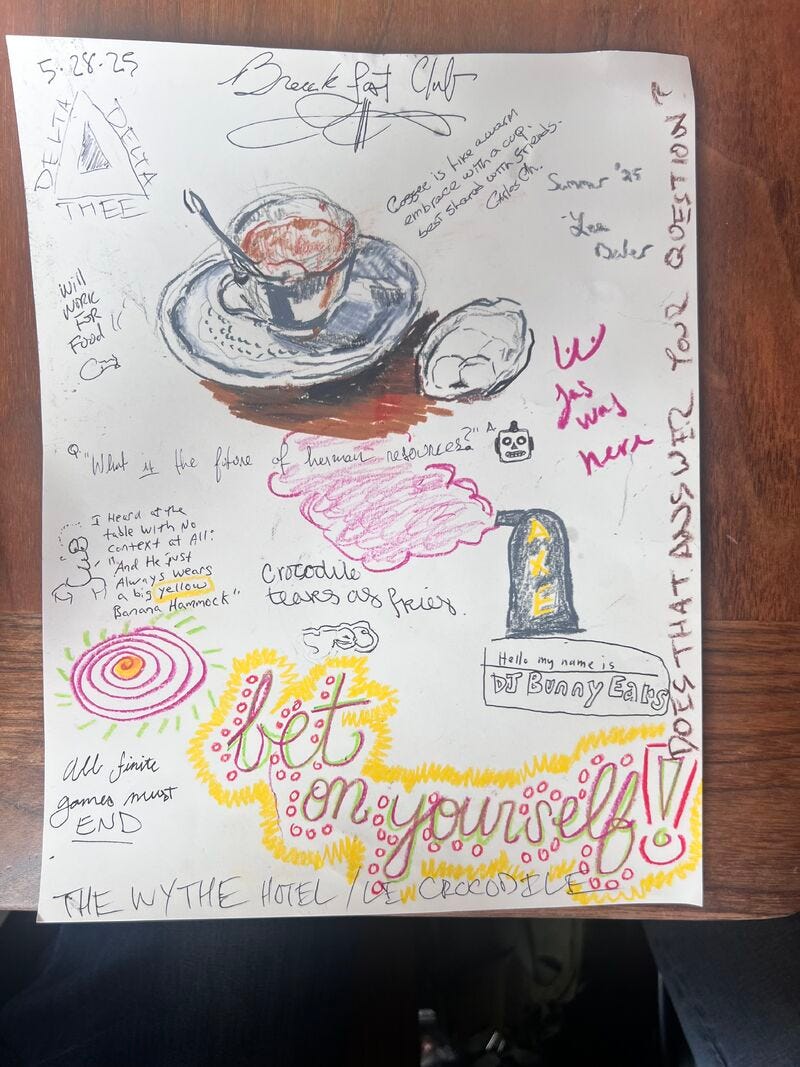 5.28.25
Breakfast Club
DELTA
DELTA
THEE
Coffee is like a warm
embrace with a cup.
best shared with friends.
Carlos Ch.
Summer '25
DOES THAT ANSWER YOUR QUESTION?
Will
WORK
FOR
Food!!
Jas
was
here
Q. "What is the future of human resources?" A.
I Heard at the
table with No
context at All:
"And He just
Always wears
a big yellow
Banana Hammock"
Crocodile
tears as fries.
AXE
Hello my name is
DJ Bunny Ears
bet
on yourself!
All finite
games must
END
THE WYTHE HOTEL / LE CROCODILE